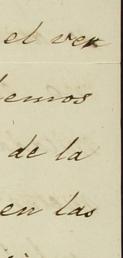 el ver
emos
de la
en las